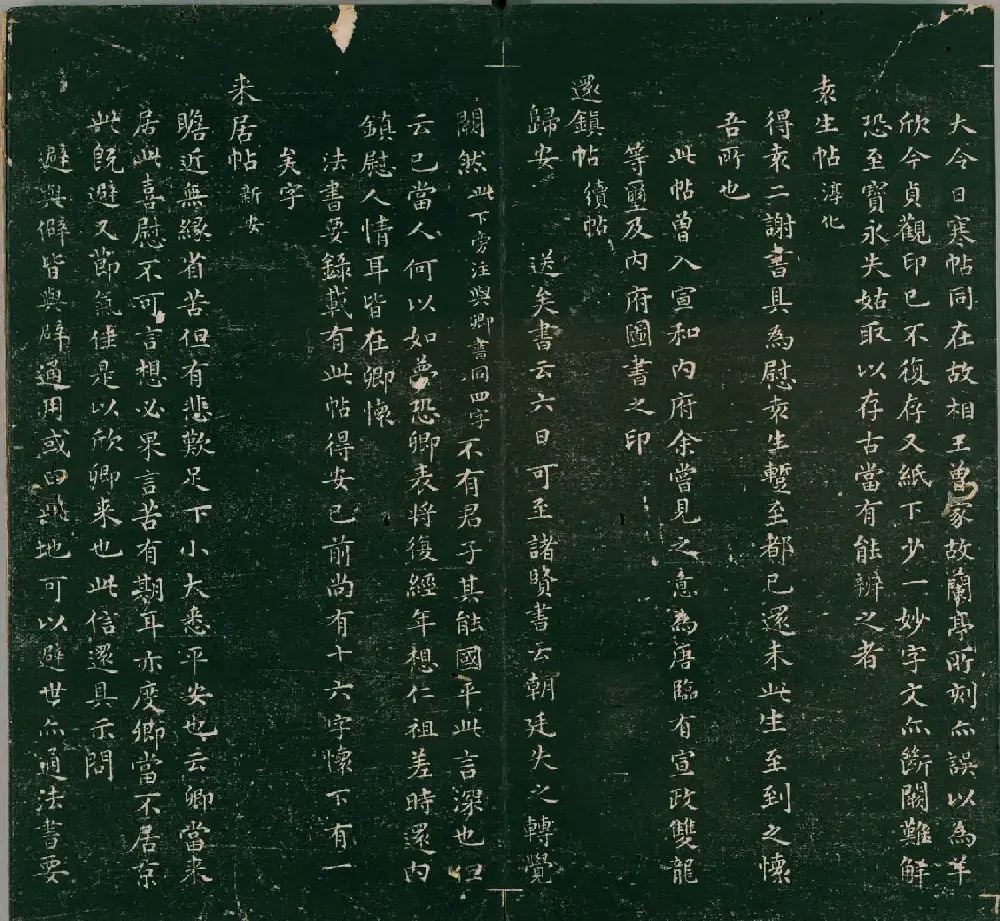 大令日寒帖同在故相王曾家故蘭亭所刻亦誤以為羊
欣今貞觀印已不復存又紙下少一妙字文亦斷闕難解
恐至寶永失姑取以存古當有能辨之者
袁生帖 淳化
得袁二謝書具為慰袁生蹔至都已還未此生至到之懷
吾所也
此帖曾入宣和內府余嘗見之意為唐臨有宣政雙龍
等璽及內府圖書之印
還鎮帖 續帖
歸安 送矣書云六日可至諸賢書云朝廷失之轉覺
闕然此下旁注與卿書同四字不有君子其能國乎此言深也但
云已當人何以如夢恐卿表將復經年想仁祖差時還內
鎮慰人情耳皆在卿懷
法書要錄載有此帖得安已前尚有十六字懷下有一
矣字
来居帖 新安
瞻近無緣省苦但有悲歎足下小大悉平安也云卿當来
居此喜慰不可言想必果言苦有期耳亦度卿當不居京
此既避又節氣佳是以欣卿来也此信還具示問
避與僻皆與辟通用或曰此地可以避世亦通法書要